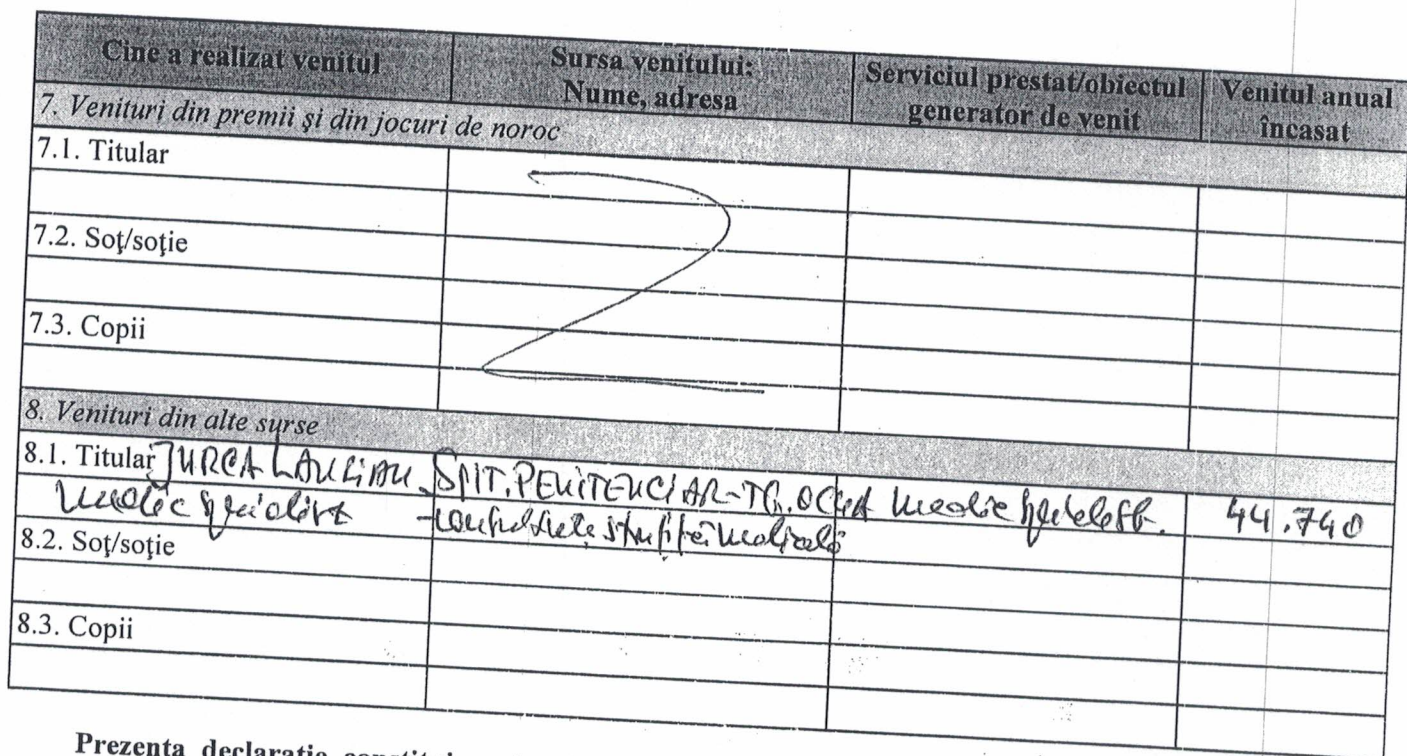 Cine a realizat venitul
Sursa venitului:
Nume, adresa
Serviciul prestat/obiectul
generator de venit
Venitul anual
încasat
7. Venituri din premii şi din jocuri de noroc
7.1. Titular
7.2. Soţ/soţie
7.3. Copii
8. Venituri din alte surse
8.1. Titular JURCA SPIT. PENITENCIAR-TG. OCNA medic 44.740
medic specialist
8.2. Soţ/soţie
8.3. Copii
Prezenta declaraţie